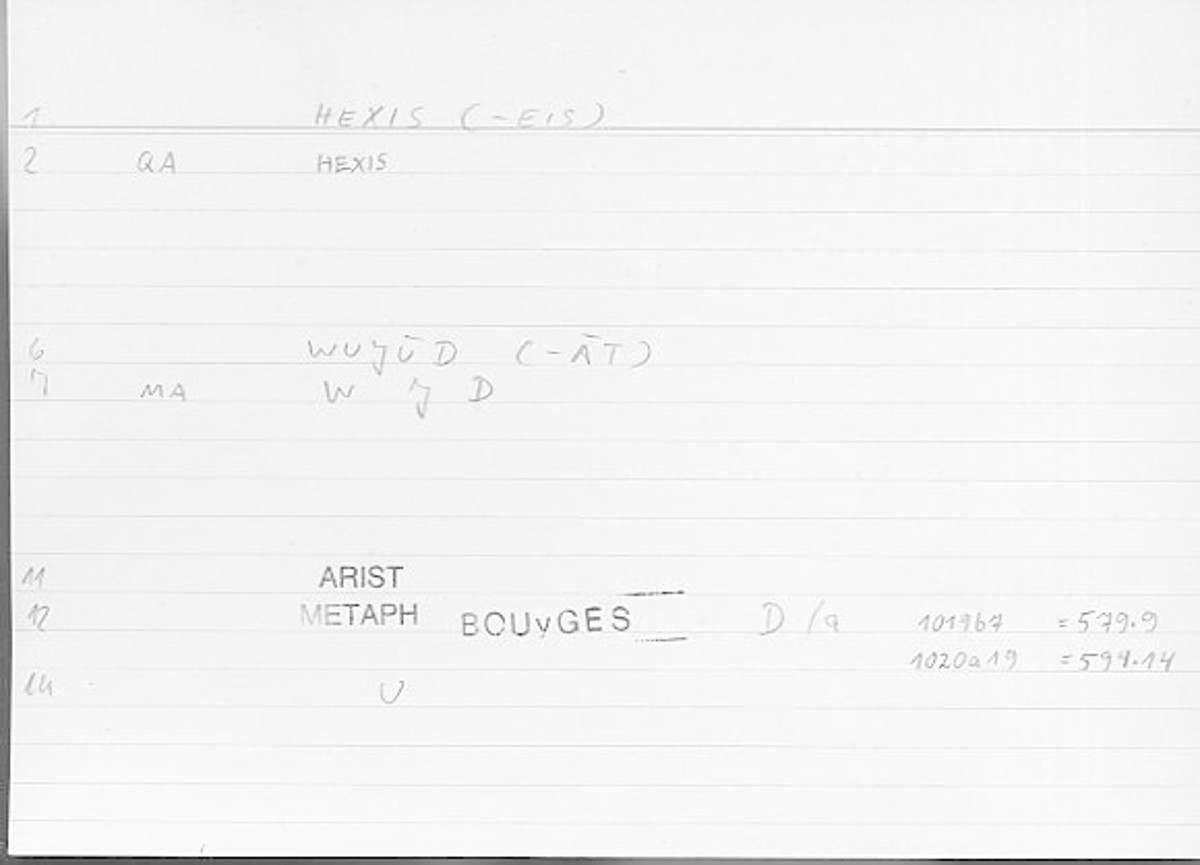 1 HEXIS (-EIS)
2 QA HEXIS
6 WUJŪD (-ĀT)
7 MA W J D
11 ARIST
12 METAPH BOUyGES D /a 1019b7 = 579.9
1020a19 = 594.14
14 U